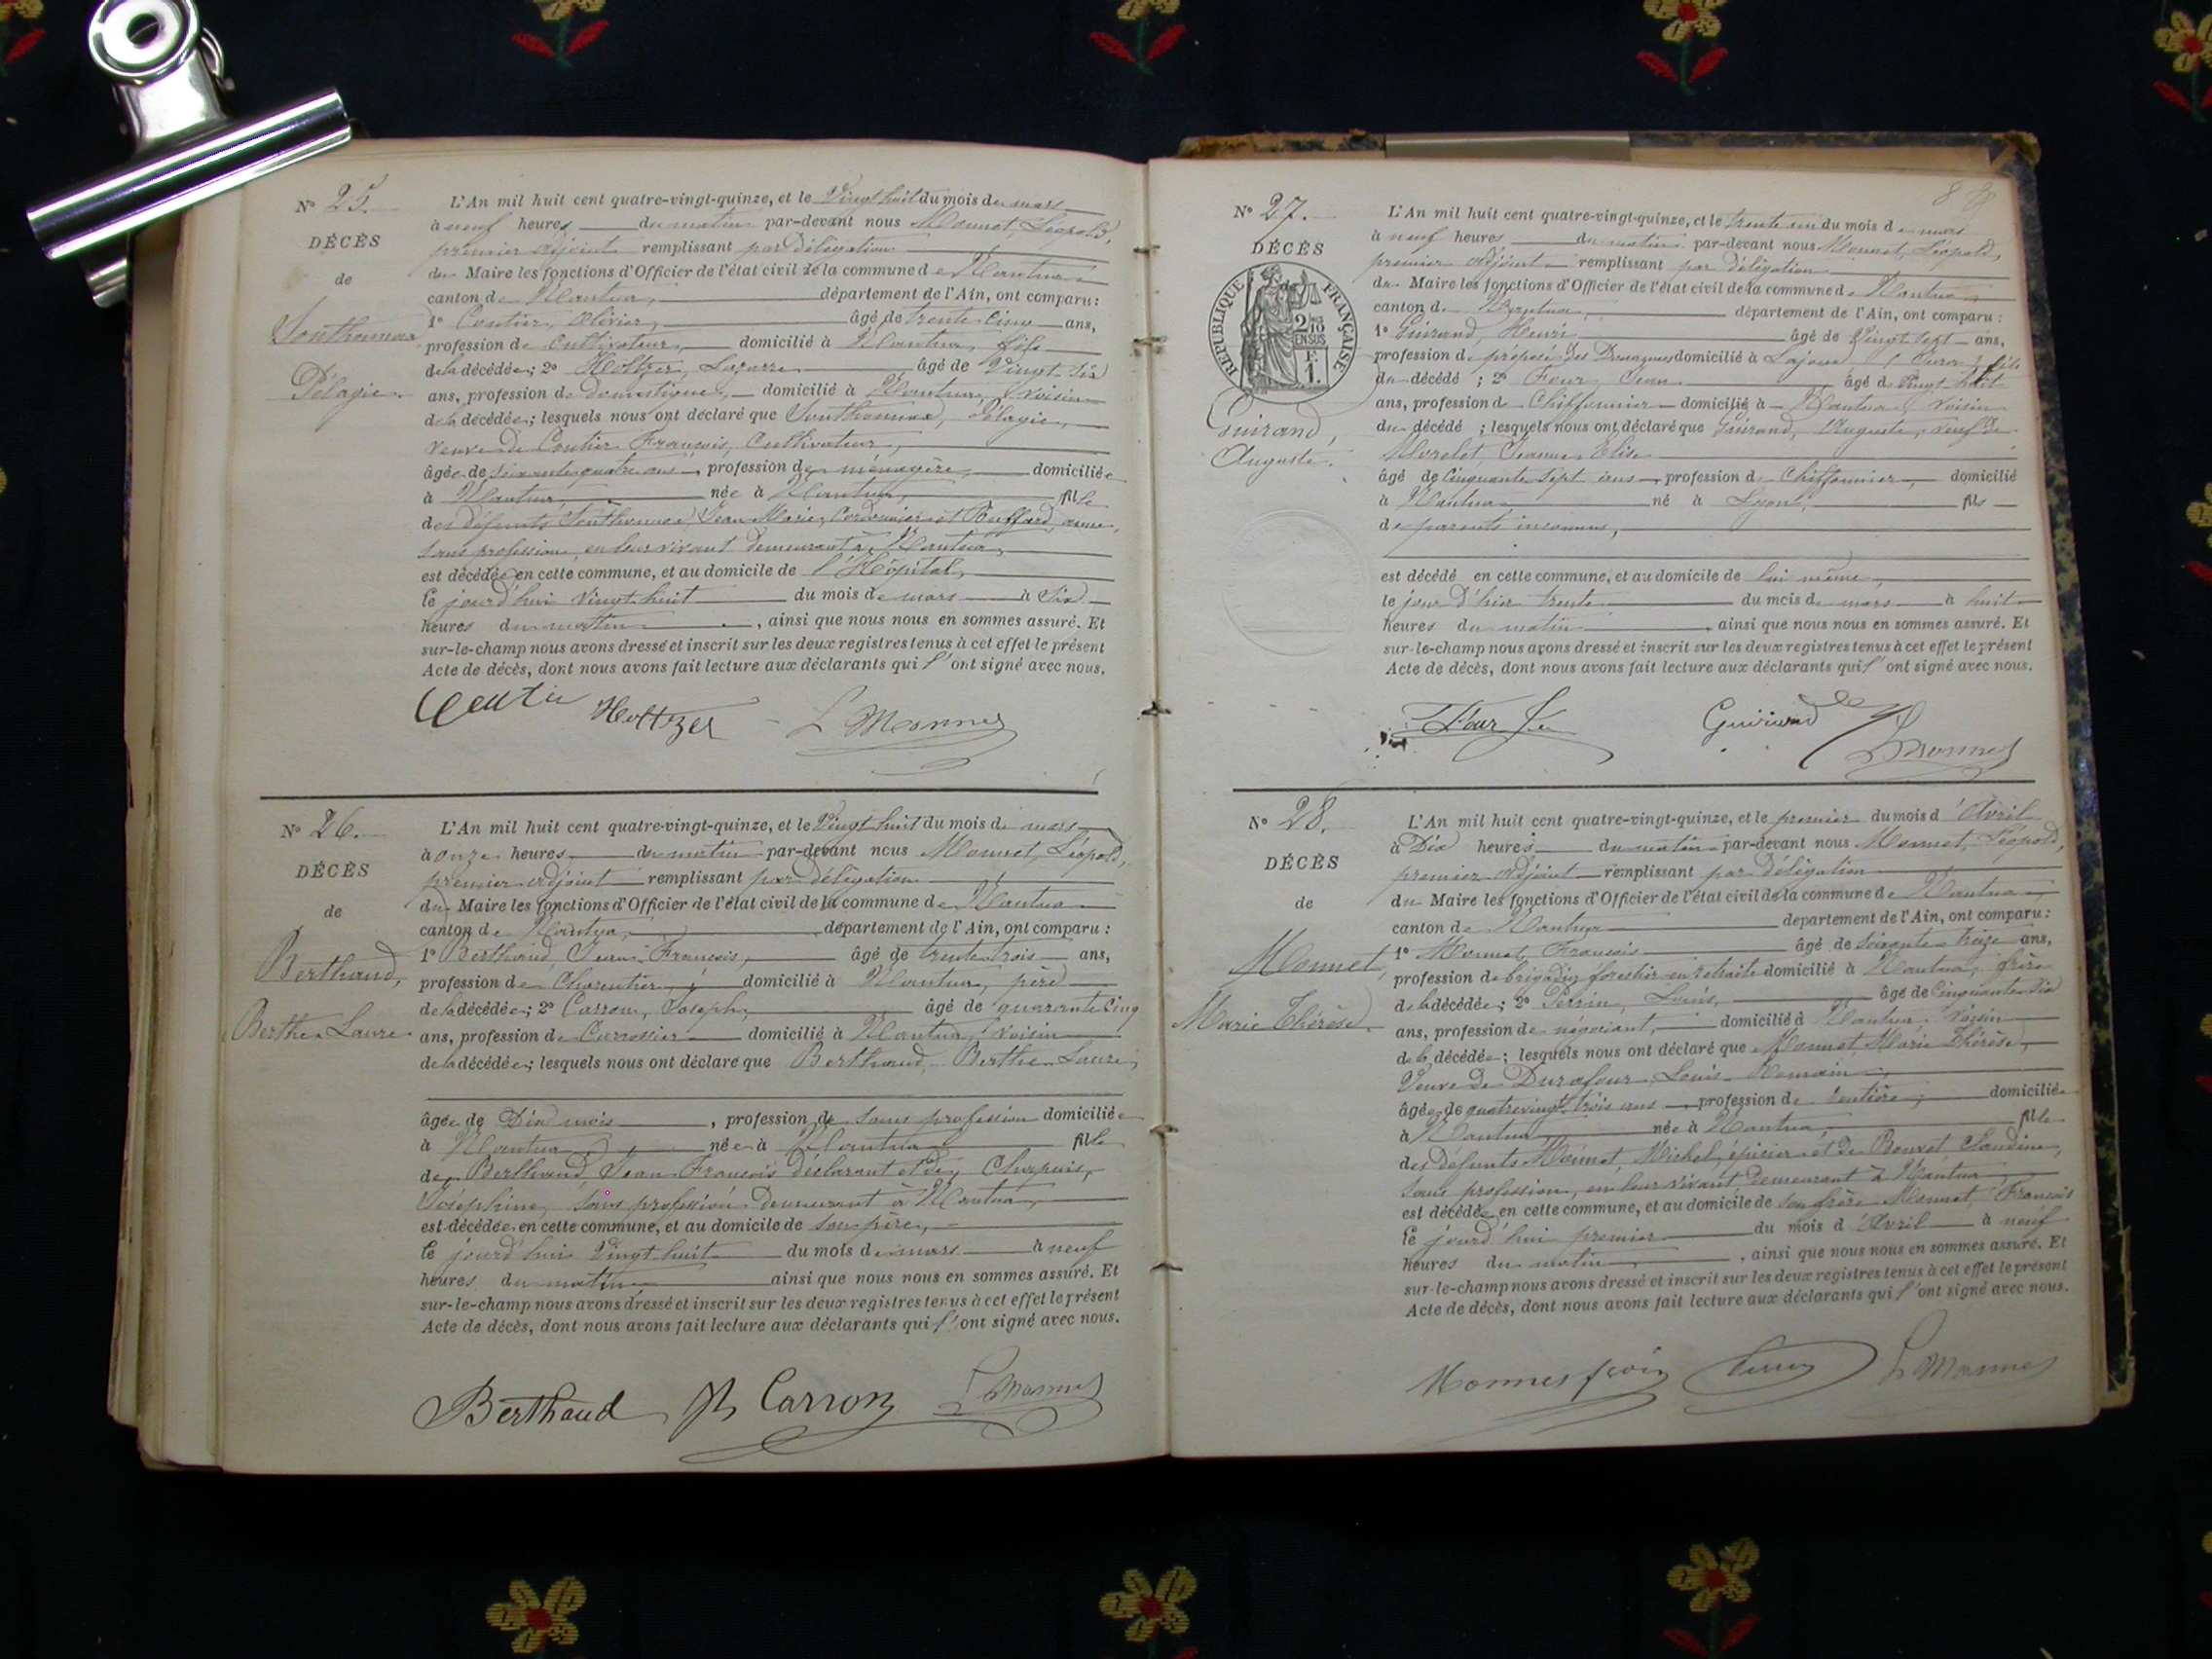 N° 25.
DÉCÈS
de
Southonnax
Pélagie.
L'An mil huit cent quatre-vingt-quinze, et le Vingt huit du mois de mars
à neuf heures du matin par-devant nous Monnet, Léopold,
premier adjoint remplissant par Délégation
du Maire les fonctions d'Officier de l'état civil de la commune de Nantua
canton de Nantua, département de l'Ain, ont comparu :
1° Coutier, Olivier, âgé de trente cinq ans,
profession de Cultivateur, domicilié à Nantua, fils
de la décédée; 2° Holtzer, Lazarre âgé de Vingt six
ans, profession de domestique, domicilié à Nantua, voisin
de la décédée; lesquels nous ont déclaré que Southonnax, Pélagie,
veuve de Coutier François, Cultivateur,
âgée de soixante quatre ans, profession de ménagère, domiciliée
à Nantua, née à Nantua, fille
des défunts Southonnax, Jean Marie, Cordonnier et Buffard, anne,
sans profession, en leur vivant demeurant à Nantua,
est décédée en cette commune, et au domicile de l'Hôpital,
le jourd'hui vingt huit du mois de mars à six
heures du matin, ainsi que nous nous en sommes assuré. Et
sur-le-champ nous avons dressé et inscrit sur les deux registres tenus à cet effet le présent
Acte de décès, dont nous avons fait lecture aux déclarants qui l'ont signé avec nous.
Coutier Holtzer L Monnet
N° 26.
DÉCÈS
de
Berthaud,
Berthe Laure
L'An mil huit cent quatre-vingt-quinze, et le Vingt huit du mois de mars
à onze heures du matin par-devant nous Monnet, Léopold,
premier adjoint remplissant par délégation
du Maire les fonctions d'Officier de l'état civil de la commune de Nantua
canton de Nantua, département de l'Ain, ont comparu :
1° Berthaud, Jean François, âgé de trente trois ans,
profession de Charentier, domicilié à Nantua, père
de la décédée; 2° Carron, Joseph, âgé de quarante cinq
ans, profession de Carrossier domicilié à Nantua, voisin
de la décédée; lesquels nous ont déclaré que Berthaud, Berthe Laure,
âgée de Dix mois, profession de sans profession domiciliée
à Nantua, née à Nantua fille
de Berthaud Jean François déclarant et de Chapuis,
Joséphine, sans profession demeurant à Nantua,
est décédée en cette commune, et au domicile de son père,
le jourd'hui Vingt huit du mois de mars à neuf
heures du matin, ainsi que nous nous en sommes assuré. Et
sur-le-champ nous avons dressé et inscrit sur les deux registres tenus à cet effet le présent
Acte de décès, dont nous avons fait lecture aux déclarants qui l'ont signé avec nous.
Berthaud Jh Carron L Monnet
N° 27.
DÉCÈS
REPUBLIQUE FRANÇAISE
2/10 EN SUS
F. 1.
Guirand,
Auguste.
L'An mil huit cent quatre-vingt-quinze, et le trente un du mois de mars
à neuf heures du matin par-devant nous Monnet, Léopold,
premier adjoint remplissant par délégation
du Maire les fonctions d'Officier de l'état civil de la commune de Nantua
canton de Nantua, département de l'Ain, ont comparu :
1° Guirand, Henri âgé de Vingt sept ans,
profession de préposé des Douanes domicilié à Lajoux (Jura) fils
du décédé; 2° Four, Jean âgé de Vingt huit
ans, profession de Chiffonnier domicilié à Nantua, voisin
du décédé; lesquels nous ont déclaré que Guirand, Auguste, veuf de
Morelet, Jeanne Elise
âgé de Cinquante sept ans, profession de Chiffonnier, domicilié
à Nantua né à Lyon, fils
de parents inconnus,
est décédé en cette commune, et au domicile de lui même,
le jour d'hier trente du mois de mars à huit
heures du matin, ainsi que nous nous en sommes assuré. Et
sur-le-champ nous avons dressé et inscrit sur les deux registres tenus à cet effet le présent
Acte de décès, dont nous avons fait lecture aux déclarants qui l'ont signé avec nous.
Four Guirand L Monnet
N° 28.
DÉCÈS
de
Monnet,
Marie Thérèse.
L'An mil huit cent quatre-vingt-quinze, et le premier du mois d'Avril
à Dix heures du matin par-devant nous Monnet, Léopold,
premier adjoint remplissant par délégation
du Maire les fonctions d'Officier de l'état civil de la commune de Nantua
canton de Nantua département de l'Ain, ont comparu :
1° Monnet, François âgé de soixante treize ans,
profession de brigadier forestier en retraite domicilié à Nantua, frère
de la décédée; 2° Perrin, Louis, âgé de Cinquante six
ans, profession de négociant, domicilié à Nantua, voisin
de la décédée; lesquels nous ont déclaré que Monnet, Marie Thérèse,
Veuve de Durafour, Louis Romain,
âgée de quatre vingt trois ans, profession de rentière, domiciliée
à Nantua née à Nantua, fille
des défunts Monnet, Michel, épicier et de Bouvet, Claudine,
sans profession, en leur vivant demeurant à Nantua
est décédée en cette commune, et au domicile de son frère Monnet François
le jourd'hui premier du mois d'Avril à neuf
heures du matin, ainsi que nous nous en sommes assuré. Et
sur-le-champ nous avons dressé et inscrit sur les deux registres tenus à cet effet le présent
Acte de décès, dont nous avons fait lecture aux déclarants qui l'ont signé avec nous.
Monnet fçois Perrin L Monnet